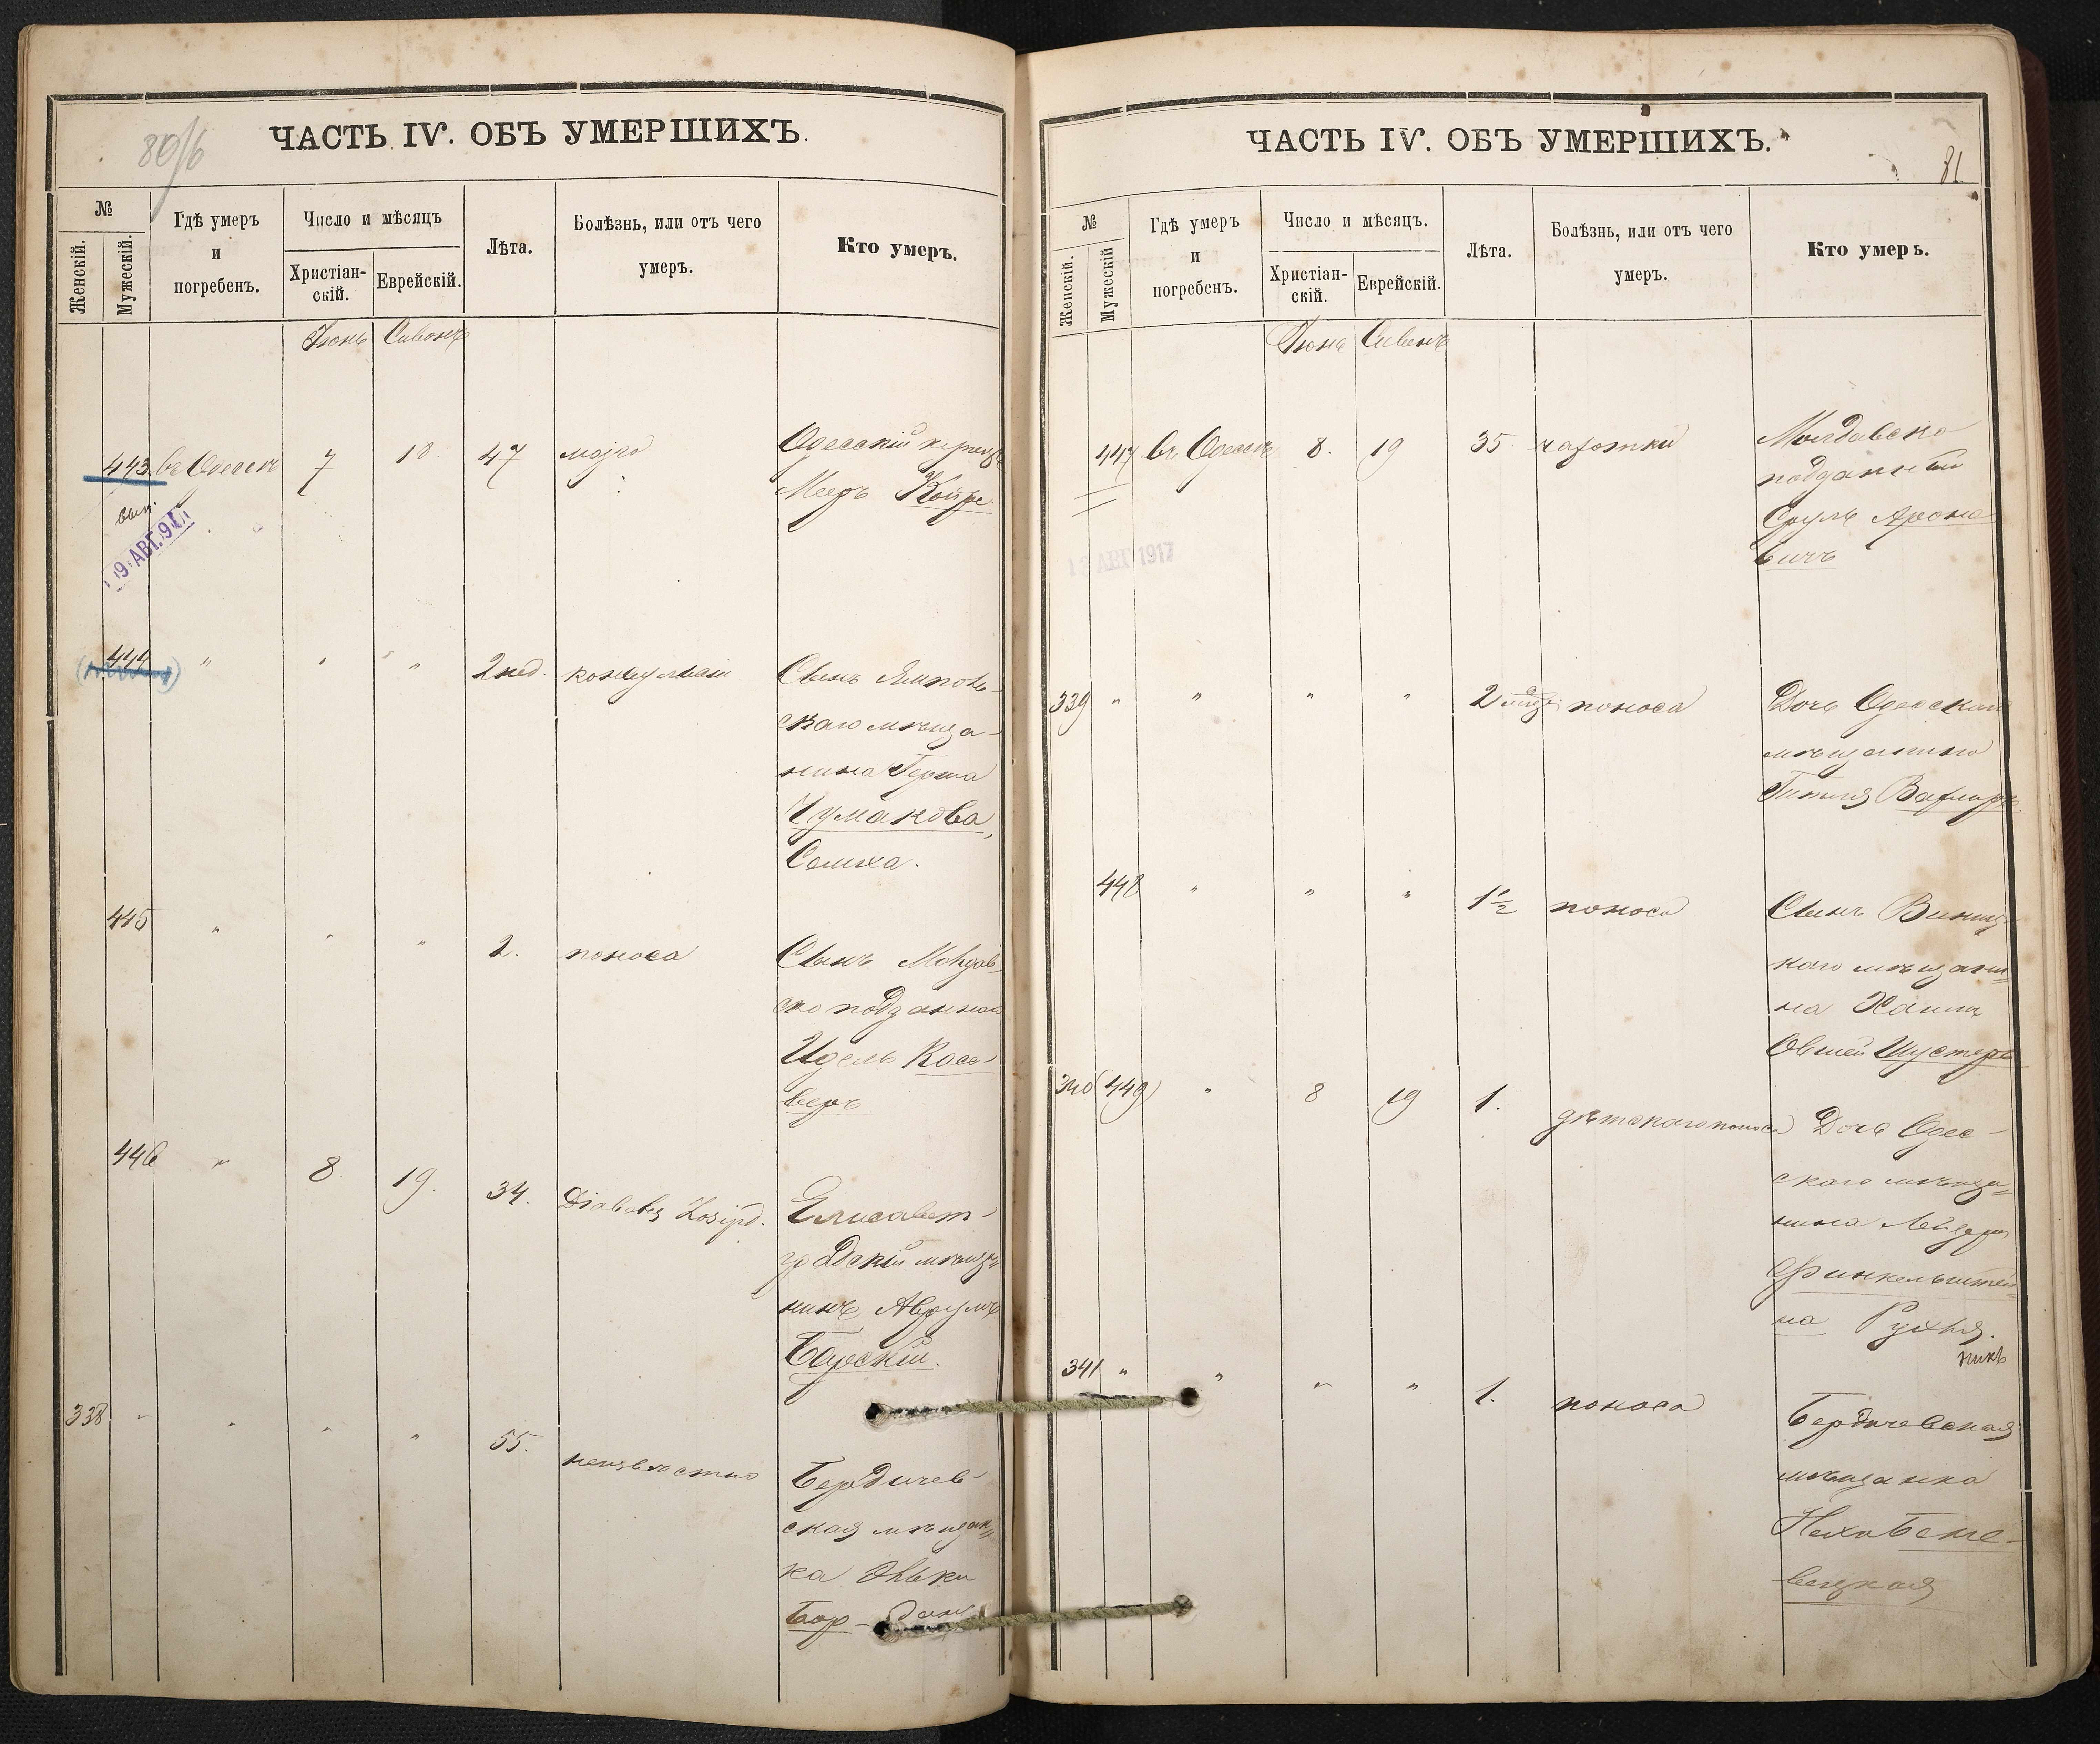 80/б
ЧАСТЬ IV. ОБЪ УМЕРШИХЪ.
№
Женскій.
Мужескій.
Гдѣ умеръ
и
погребенъ.
Число и мѣсяцъ
Христіан-
скій.
Еврейскій.
Лѣта.
Болѣзнь, или отъ чего
умеръ.
Кто умеръ.
Іюнь Сивонъ
443 въ Одессѣ 7 18 47
Одесскій
Мееръ
вып.
19 АВГ. 9
444 " " " 2 нед. конвульсіи Сынъ Ямполь-
скаго мѣща-
нина Герша
Чумакова,
Симха.
445 " " " 2. поноса Сынъ Молдав-
ско подданнаго
Идель Косо-
веръ
446 " 8. 19. 34. Елисавет-
градскій мѣща-
нинъ Аврумъ
Барскій.
338 " " " " 55. неизвѣстно Бердичев-
ская мѣщан-
ка
Бор-
81.
ЧАСТЬ IV. ОБЪ УМЕРШИХЪ.
№
Женскій.
Мужескій
Гдѣ умеръ
и
погребенъ.
Число и мѣсяцъ.
Христіан-
скій.
Еврейскій.
Лѣта.
Болѣзнь, или отъ чего
умеръ.
Кто умеръ.
Іюнь Сивонъ
447 въ Одессѣ 8. 19 35 чахотки Молдавско
подданный
Сруль Ароно
вичъ
13 АВГ 1917
339 " " " " 2 поноса Дочь Одесскаго
мѣщанина
448 " " " 1½ поноса Сынъ Винниц-
каго мѣщани-
на Хаима
Овшей Шустеръ
340 (449) " 8 19 1. дѣтскаго поноса Дочь Одес-
скаго мѣща-
нина Лейзера
Финкельштей-
на Рухля.
341 " " " " 1. поноса
Бердичевская
мѣщанка
Неха Беке-
вецкая